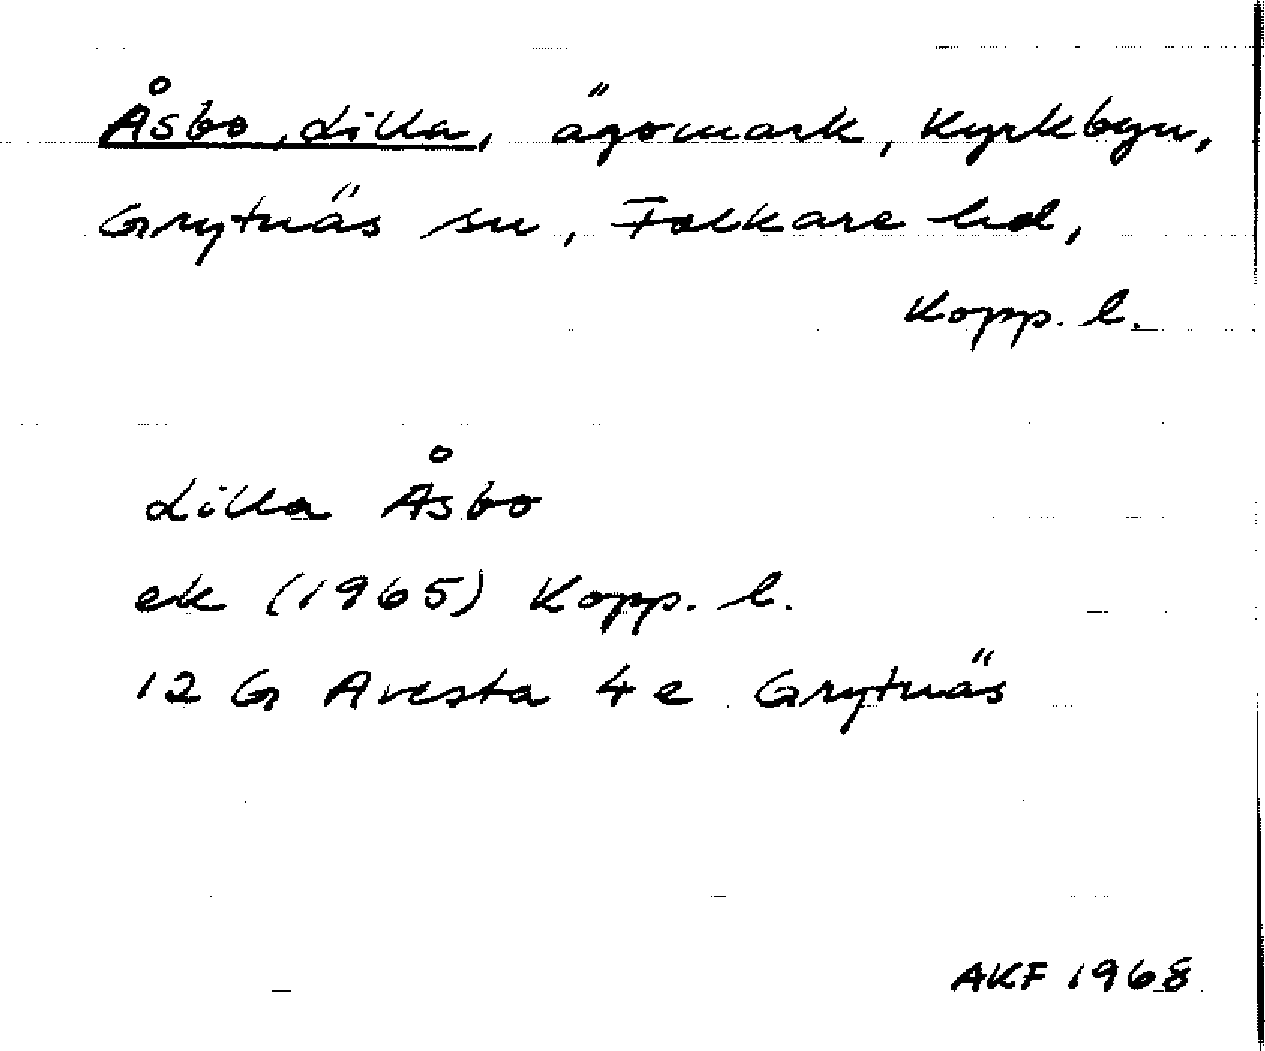 Åsbo, Lilla, ägomark, Kyrkbyn,
Grytnäs sn, Folkare hd,
Kopp. l.
Lilla Åsbo
ek (1965) Kopp. l.
12 G Avesta 4 e Grytnäs
AKF 1968